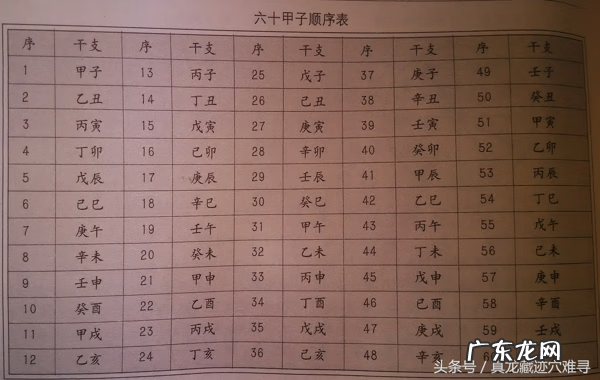 六十甲子顺序表
序 干支 序 干支 序 干支 序 干支 序 干支
1 甲子 13 丙子 25 戊子 37 庚子 49 壬子
2 乙丑 14 丁丑 26 己丑 38 辛丑 50 癸丑
3 丙寅 15 戊寅 27 庚寅 39 壬寅 51 甲寅
4 丁卯 16 己卯 28 辛卯 40 癸卯 52 乙卯
5 戊辰 17 庚辰 29 壬辰 41 甲辰 53 丙辰
6 己巳 18 辛巳 30 癸巳 42 乙巳 54 丁巳
7 庚午 19 壬午 31 甲午 43 丙午 55 戊午
8 辛未 20 癸未 32 乙未 44 丁未 56 己未
9 壬申 21 甲申 33 丙申 45 戊申 57 庚申
10 癸酉 22 乙酉 34 丁酉 46 己酉 58 辛酉
11 甲戌 23 丙戌 35 戊戌 47 庚戌 59 壬戌
12 乙亥 24 丁亥 36 己亥 48 辛亥
广东龙网
头条号 / 真龙藏迹穴难寻